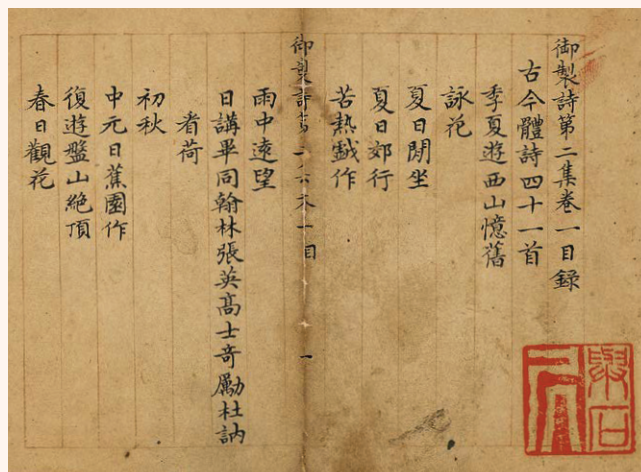 御製詩第二集卷一目錄
古今體詩四十一首
季夏遊西山憶舊
詠花
夏日閒坐
夏日郊行
苦熱戲作
御製詩第二
目
一
雨中遠望
日講畢同翰林張英高士奇勵杜訥
看荷
初秋
中元日蕉園作
復遊盤山絶頂
春日觀花